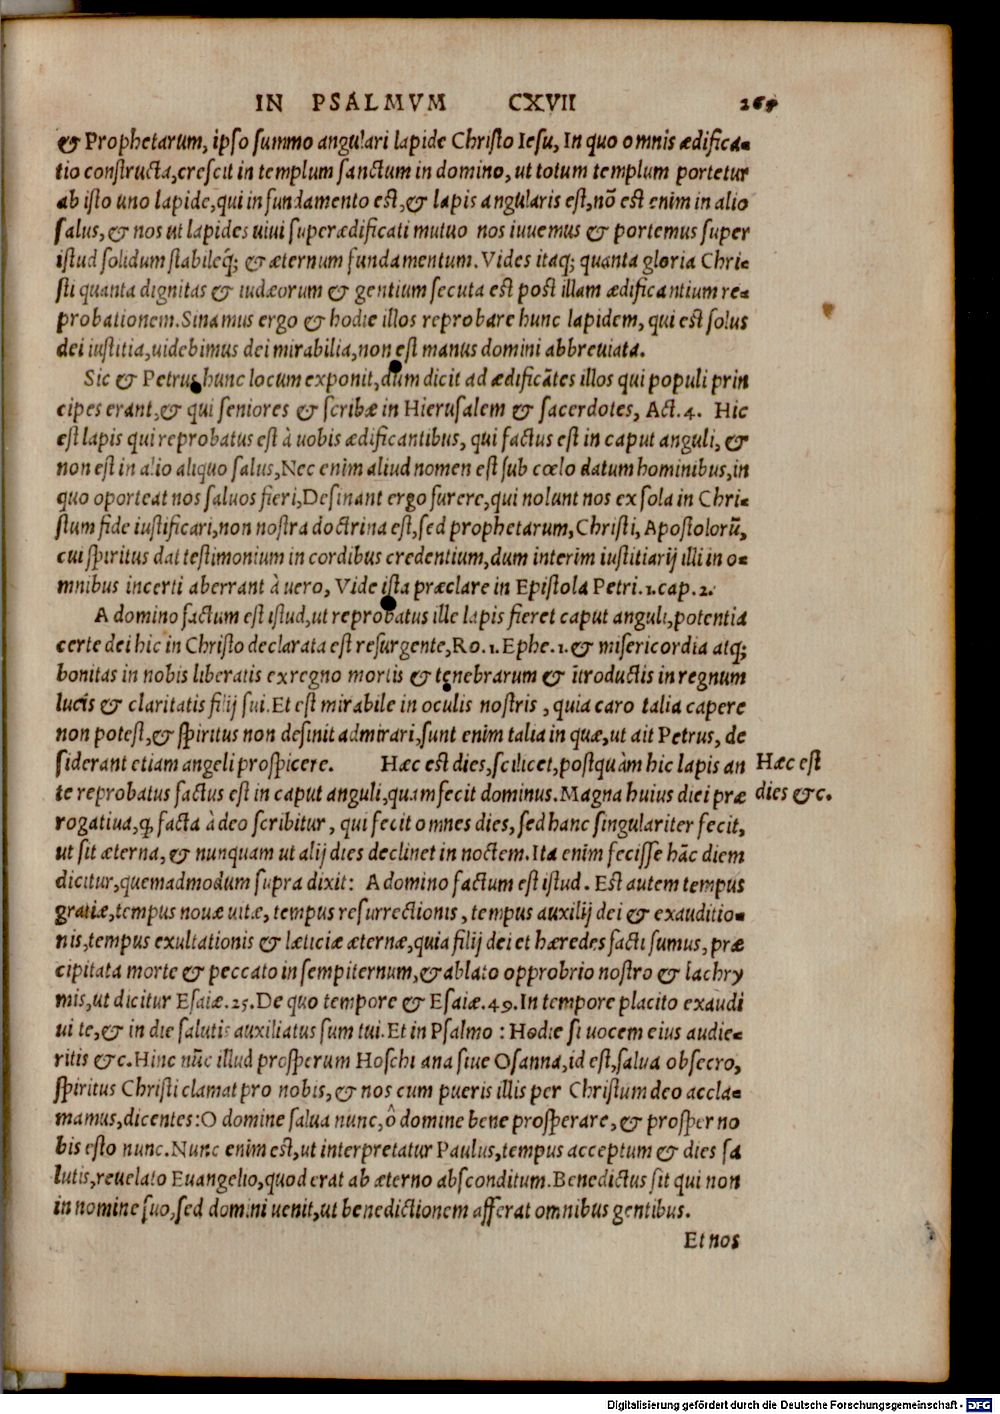 IN PSALMVM CXVII
& Prophetarum, ipso summo angulari lapide Christo Iesu, In quo omnis ædifica-
tio constructa, crescit in templum sanctum in domino, ut totum templum portetur
ab isto uno lapide, qui in fundamento est, & lapis angularis est, nõ est enim in alio
salus, & nos ut lapides uiui superædificati mutuo nos iuuemus & portemus super
istud solidum stabileq́; & æternum fundamentum. Vides itaq; quanta gloria Chri-
sti quanta dignitas & iudæorum & gentium secuta est post illam ædificantium re-
probationem. Sinamus ergo & hodie illos reprobare hunc lapidem, qui est solus
dei iustitia, uidebimus dei mirabilia, non est manus domini abbreuiata.
Sic & Petrus hunc locum exponit, dum dicit ad ædificãtes illos qui populi prin
cipes erant, & qui seniores & scribæ in Hierusalem & sacerdotes, Act. 4. Hic
est lapis qui reprobatus est à uobis ædificantibus, qui factus est in caput anguli, &
non est in alio aliquo salus, Nec enim aliud nomen est sub cœlo datum hominibus, in
quo oporteat nos saluos fieri, Desinant ergo furere, qui nolunt nos ex sola in Chri-
stum fide iustificari, non nostra doctrina est, sed prophetarum, Christi, Apostolorũ,
cui spiritus dat testimonium in cordibus credentium, dum interim iustitiarij illi in o-
mnibus incerti aberrant à uero, Vide ista præclare in Epistola Petri. 1. cap. 2.
A domino factum est istud, ut reprobatus ille lapis fieret caput anguli, potentia
certe dei hic in Christo declarata est resurgente, Ro. 1. Ephe. 1. & misericordia atq;
bonitas in nobis liberatis ex regno mortis & tenebrarum & ĩtroductis in regnum
lucis & claritatis filij sui. Et est mirabile in oculis nostris, quia caro talia capere
non potest, & spiritus non desinit admirari, sunt enim talia in quæ, ut ait Petrus, de
siderant etiam angeli prospicere. Hæc est dies, scilicet, postquàm hic lapis an
te reprobatus factus est in caput anguli, quam fecit dominus. Magna huius diei præ
rogatiua, q, facta à deo scribitur, qui fecit omnes dies, sed hanc singulariter fecit,
ut sit æterna, & nunquam ut alij dies declinet in noctem. Ita enim fecisse hãc diem
dicitur, quemadmodum supra dixit: A domino factum est istud. Est autem tempus
gratiæ, tempus nouæ uitæ, tempus resurrectionis, tempus auxilij dei & exauditio-
nis, tempus exultationis & læticiæ æternæ, quia filij dei et hæredes facti sumus, præ
cipitata morte & peccato in sempiternum, & ablato opprobrio nostro & lachry
mis, ut dicitur Esaiæ. 25. De quo tempore & Esaiæ. 49. In tempore placito exaudi
ui te, & in die salutis auxiliatus sum tui. Et in Psalmo : Hodie si uocem eius audie-
ritis &c. Hinc nũc illud prosperum Hoschi ana siue Osanna, id est, salua obsecro,
spiritus Christi clamat pro nobis, & nos cum pueris illis per Christum deo accla-
mamus, dicentes: O domine salua nunc, ô domine bene prosperare, & prosper no
bis esto nunc. Nunc enim est, ut interpretatur Paulus, tempus acceptum & dies sa
lutis, reuelato Euangelio, quod erat ab æterno absconditum. Benedictus sit qui non
in nomine suo, sed domini uenit, ut benedictionem afferat omnibus gentibus.
Et nos
Hæc est
dies &c.
Digitalisierung gefördert durch die Deutsche Forschungsgemeinschaft - DFG